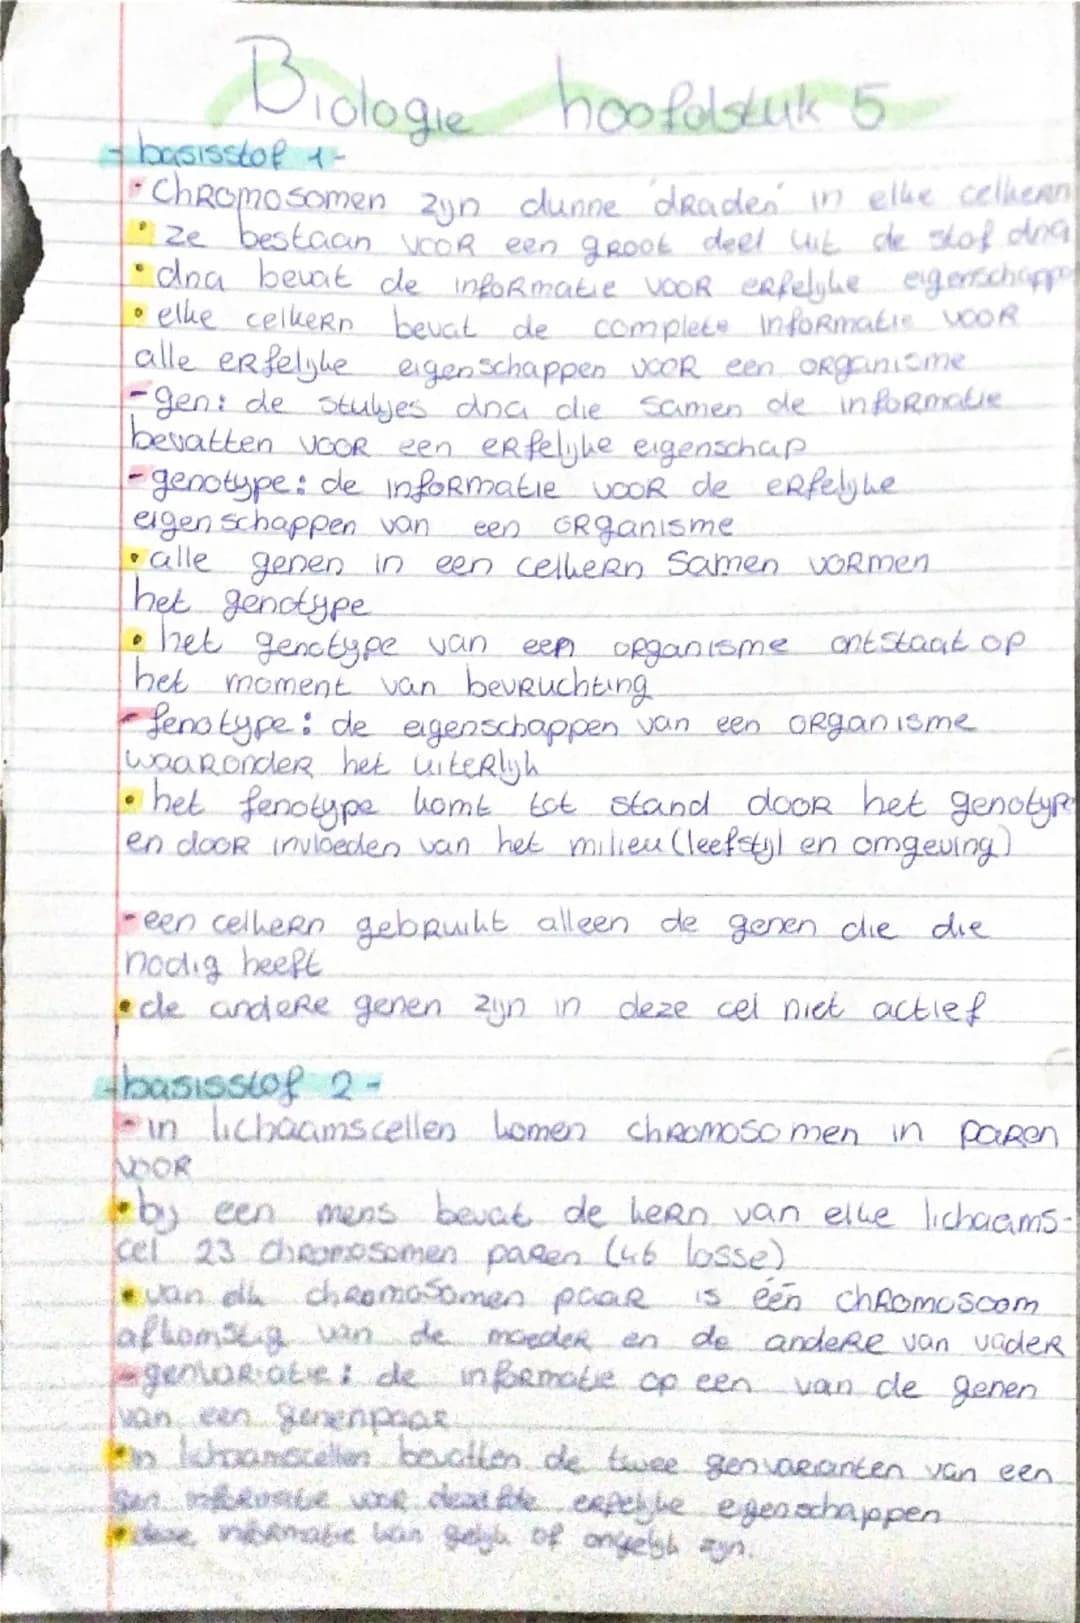 Biologie hoofdstuk 5
- basisstof 1 -
• Chromosomen zijn dunne 'draden' in elke celkern
• ze bestaan voor een groot deel uit de stof dna
• dna bevat de informatie voor erfelijke eigenschappe
• elke celkern bevat de complete informatie voor
alle erfelijke eigenschappen voor een organisme
- gen: de stukjes dna die samen de informatie
bevatten voor een erfelijke eigenschap
- genotype: de informatie voor de erfelijke
eigenschappen van een organisme
• alle genen in een celkern samen vormen
het genotype
• het genotype van een organisme ontstaat op
het moment van bevruchting
- fenotype: de eigenschappen van een organisme
waaronder het uiterlijk
• het fenotype komt tot stand door het genotype
en door invloeden van het milieu (leefstijl en omgeving)
- een celkern gebruikt alleen de genen die die
nodig heeft
• de andere genen zijn in deze cel niet actief
- basisstof 2 -
- in lichaamscellen komen chromosomen in paren
voor
• bij een mens bevat de kern van elke lichaams-
cel 23 chromosomen paren (46 losse)
• van elk chromosomen paar is één chromosoom
afkomstig van de moeder en de andere van vader
- genvariatie: de informatie op een van de genen
van een genenpaar
• in lichaamscellen bevatten de twee genvarianten van een
gen informatie voor dezelfde erfelijke eigenschappen
• deze informatie kan gelijk of ongelijk zijn.